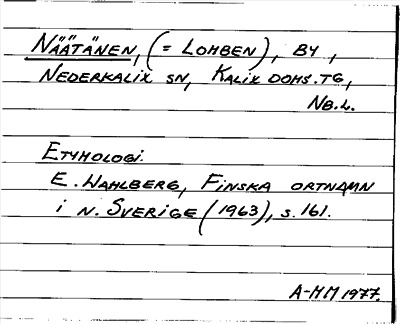 NÄÄTÄNEN, (= LOMBEN), BY,
NEDERKALIX SN, KALIX DOMS.TG,
NB.L.
ETYMOLOGI.
E. WAHLBERG, FINSKA ORTNAMN
i N. SVERIGE (1963), s. 161.
A-MM 1977.